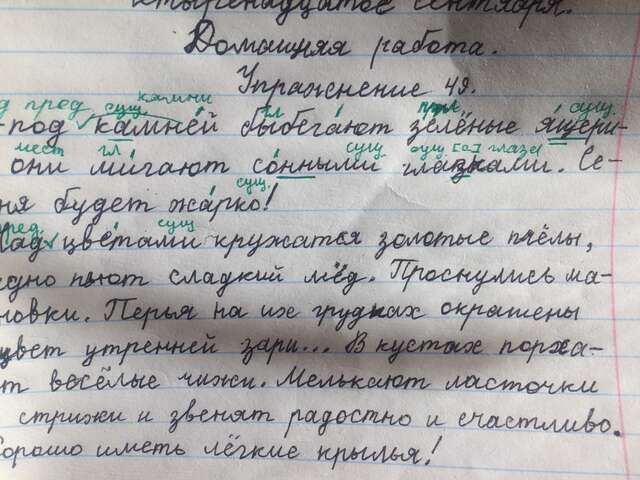 етырнадцатое сентября.
Домашняя работа.
Упражнение 49.
пред сущ. камни гл прил сущ.
-под камней выбегают зелёные ящери-
мест гл сущ сущ [а] глаза
они мигают сонными глазками. Се-
сущ.
ня будет жарко!
пред сущ
Над цветами кружатся золотые пчёлы,
адно пьют сладкий мёд. Проснулись ма-
новки. Перья на их грудках окрашены
цвет утренней зари... В кустах порха-
т весёлые чижи. Мелькают ласточки
стрижи и звенят радостно и счастливо.
Хорошо иметь лёгкие крылья!